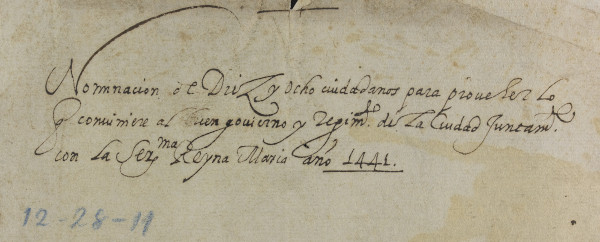 Nominacion de Diez y ocho ciudadanos para proveher lo
q̃ conviniere al buen govierno y regimᵗᵒ. de la Ciudad Juntamᵗᵉ.
con la Serᵐᵃ Reyna Maria año 1441.
12-28-11